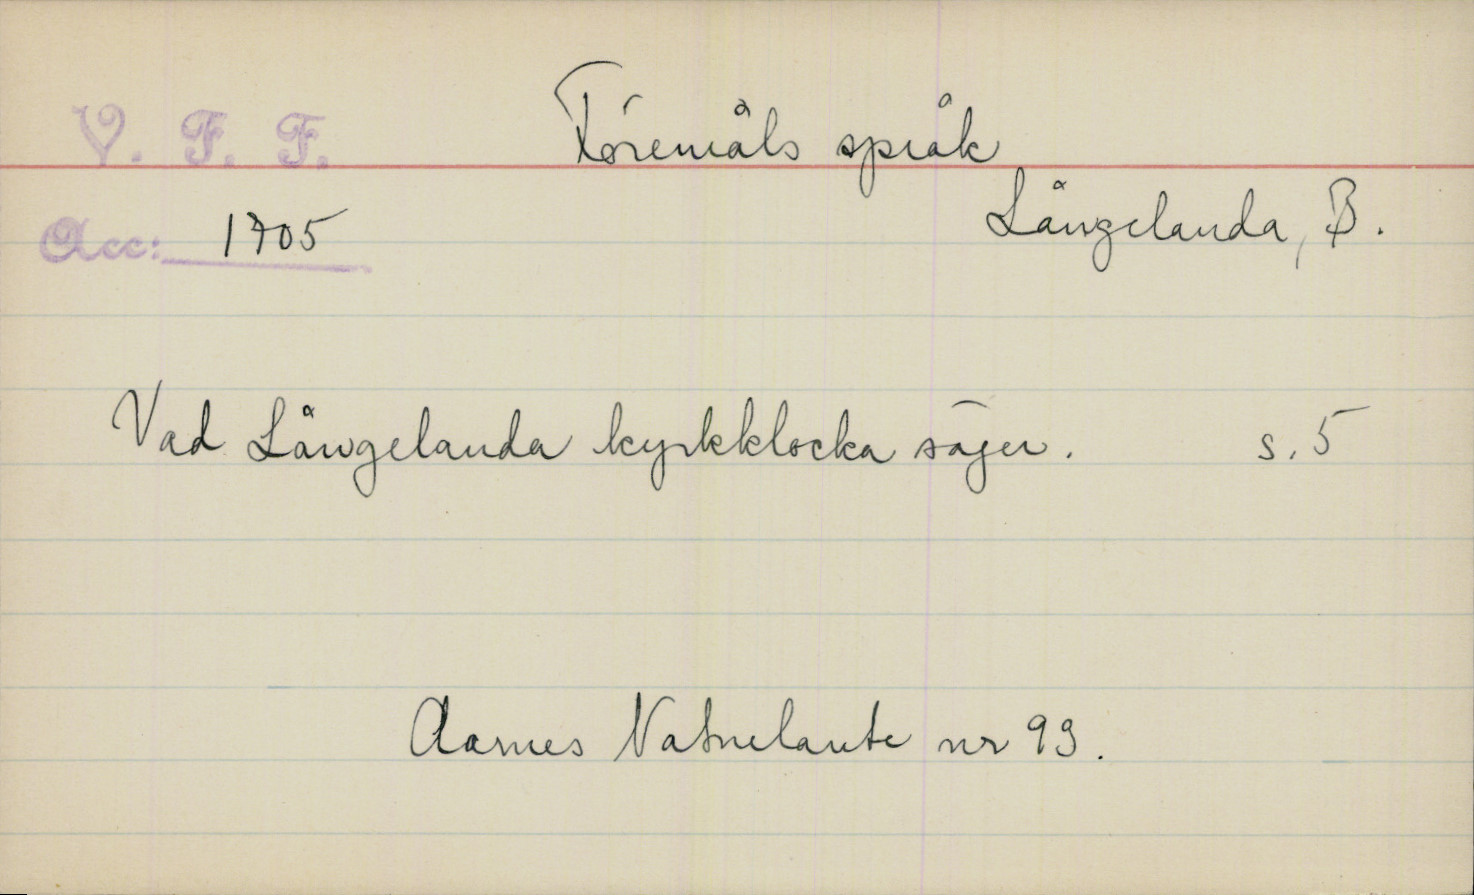 V. F. F.
Föremåls språk
Långelanda, B.
Acc: 1705
Vad Långelanda kyrkklocka säger. s. 5
Aarnes Naturlaute nr 93.